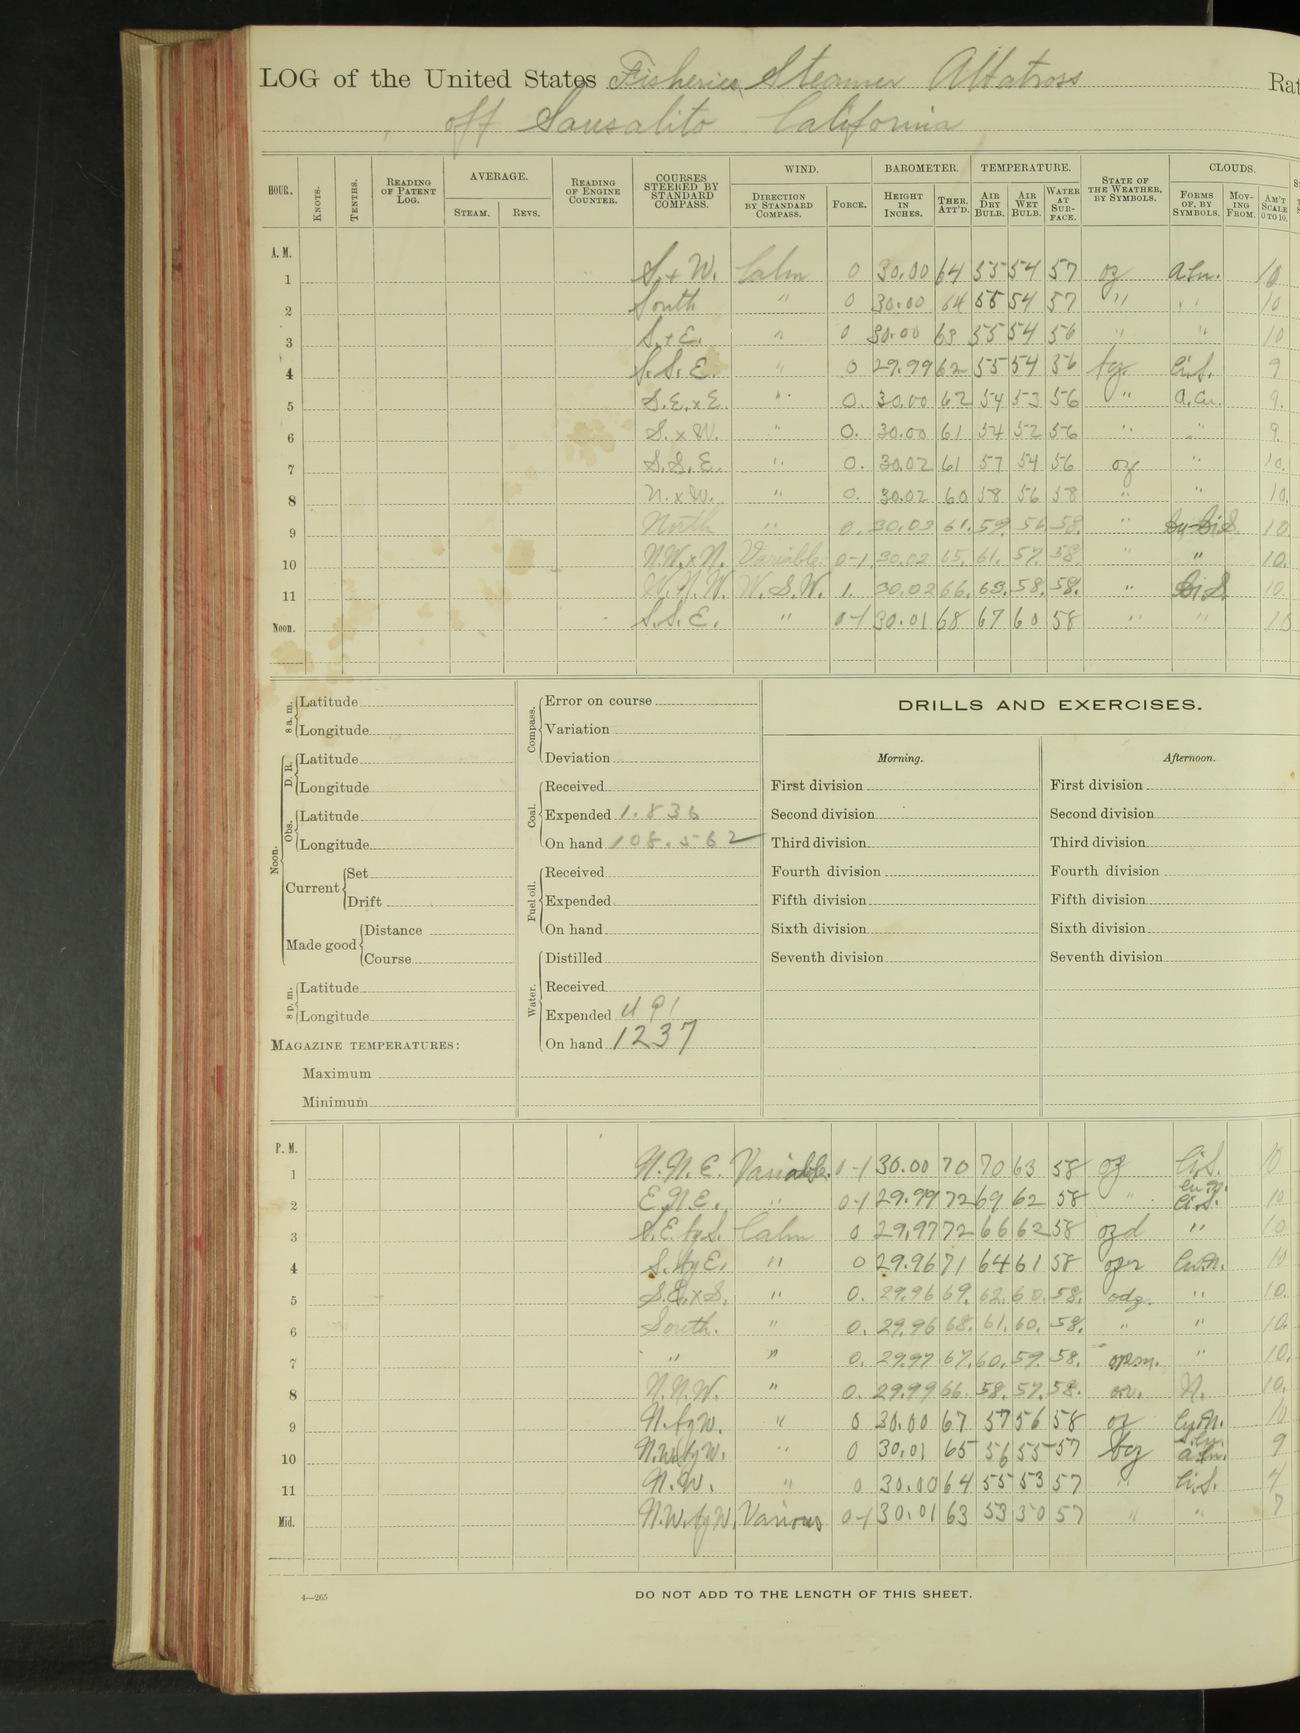 LOG of the United States Fisheries Steamer Albatross Rat
off Sausalito California
HOUR. KNOTS. TENTHS. READING OF PATENT LOG. AVERAGE. STEAM. REVS. READING OF ENGINE COUNTER. COURSES STEERED BY STANDARD COMPASS. WIND. DIRECTION BY STANDARD COMPASS. FORCE. BAROMETER. HEIGHT IN INCHES. THER. ATT'D. TEMPERATURE. AIR DRY BULB. AIR WET BULB. WATER AT SURFACE. STATE OF THE WEATHER, BY SYMBOLS. CLOUDS. FORMS OF, BY SYMBOLS. MOVING FROM. AM'T SCALE 0 TO 10.
A. M.
1 S. x W. Calm 0 30.00 64 55 54 57 oz a.cu. 10
2 South " 0 30.00 64 55 54 57 " " 10
3 S. x E. " 0 30.00 63 55 54 56 " " 10
4 S. S. E. " 0 29.99 62 55 54 56 Ci.S. 9
5 S.E. x E. " 0. 30.00 62 54 53 56 " a.cu. 9.
6 S. x W. " 0. 30.00 61 54 52 56 " " 9.
7 S. S. E. " 0. 30.02 61 57 54 56 oz " 10.
8 N. x W. " 0. 30.02 60 58 56 58 " " 10.
9 North " 0. 30.03 61. 59. 56 58. " Ci.S. 10.
10 N.W. x N. Variable. 0-1. 30.02 65. 61. 57. 58. " " 10.
11 W. N. W. W. S. W. 1. 30.02 66. 63. 58. 58. " Ci.S. 10.
Noon. S. S. E. " 0-1 30.01 68 67 60 58 " " 10
8 a. m. Latitude
Longitude
Noon. D. R. Latitude
Longitude
Obs. Latitude
Longitude
Current Set
Drift
Made good Distance
Course
8 p. m. Latitude
Longitude
MAGAZINE TEMPERATURES:
Maximum
Minimum
Compass. Error on course
Variation
Deviation
Coal. Received
Expended 1.836
On hand 108.562
Fuel oil. Received
Expended
On hand
Water. Distilled
Received
Expended 491
On hand 1237
DRILLS AND EXERCISES.
Morning.
First division
Second division
Third division
Fourth division
Fifth division
Sixth division
Seventh division
Afternoon.
First division
Second division
Third division
Fourth division
Fifth division
Sixth division
Seventh division
P. M.
1 N. N. E. Variable. 0-1 30.00 70 70 63 58 oz Ci.S. 10
2 E.N.E. " 0-1 29.99 72 69 62 58 " Cu.N. Ci.S. 10
3 S.E. by S. Calm 0 29.97 72 66 62 58 ozd " 10
4 S. by E. " 0 29.96 71 64 61 58 ozr Cu.N. 10
5 S.E. x S. " 0. 29.96 69. 62. 60. 58. odz. " 10.
6 South. " 0. 29.96 68. 61. 60. 58. " " 10.
7 " " 0. 29.97 67. 60. 59. 58. " 10.
8 N. N. W. " 0. 29.99 66. 58. 57. 58. N. 10.
9 N. by W. " 0 30.00 67 57 56 58 oz Cu.N. 10
10 N.W. by W. " 0 30.01 65 56 55 57 bcz S.Cu. a.cu. 9
11 N. W. " 0 30.00 64 55 53 57 " Ci.S. 4
Mid. N.W. by W. Various 0-1 30.01 63 53 50 57 " " 7
4—265
DO NOT ADD TO THE LENGTH OF THIS SHEET.